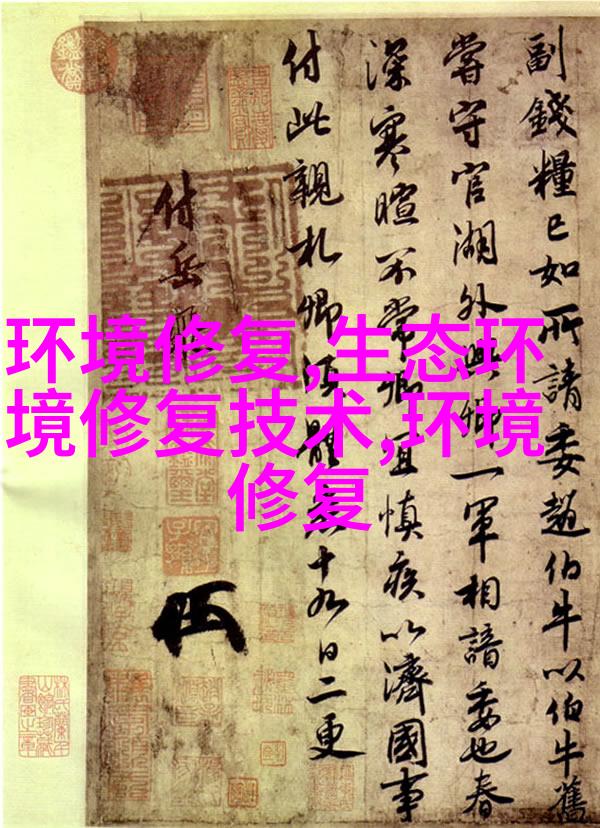 环境修复,生态环
境修复技术,环境
修复
副錢糧已如所請委趙伯牛以伯牛舊
嘗守官湖外與卿一軍相諳委也春
深寒暄不常卿宜慎疾以濟國事
付此親札卿須體悉十九日二更
付岳飛